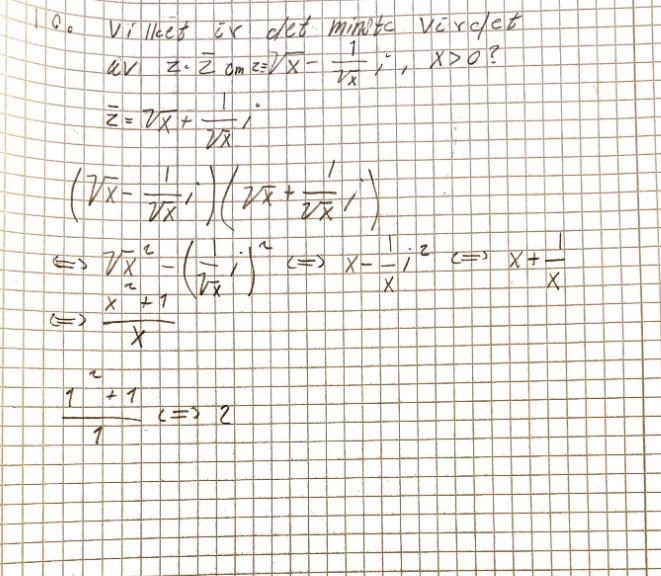 10. Villket är det minsta värdet
av z · z̄ om z = √x − 1/√x i, x > 0?
z̄ = √x + 1/√x i
(√x − 1/√x i)(√x + 1/√x i)
⇔ √x² − (1/√x i)² ⇔ x − 1/x i² ⇔ x + 1/x
⇔ (x² + 1)/x
(1² + 1)/1 ⇔ 2